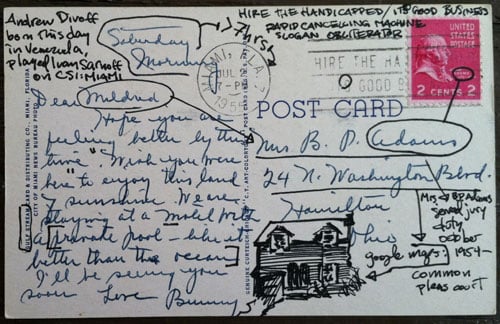 Andrew Divoff
born this day
in Venezuela,
played Ivan Sarnoff
on CSI: MIAMI
Saturday
Morning
→ Thursd
HIRE THE HANDICAPPED / ITS GOOD BUSINESS
RAPID CANCELLING MACHINE
SLOGAN OBLITERATOR
MIAMI, FLA.
JUL
7-PM
195
HIRE THE HA
GOOD B
UNITED STATES
POSTAGE
2 CENTS 2
Dear Mildred
Hope you are
feeling better by this
time. Wish you were
here to enjoy this land
of sunshine. We are
staying at a motel with
a private pool - like it
better than the ocean
I'll be seeing you
soon. Love Bunny
GULF STREAM CARD & DISTRIBUTING CO., MIAMI, FLORIDA
CITY OF MIAMI NEWS BUREAU PHOTO
GENUINE CURTEICH
C.T. ART-COLORTONE
POST CARD
Mrs B. P. Adams
24 N. Washington Blvd.
Hamilton
Ohio
Mrs BP Adams
served jury
duty
october
1954 -
common
pleas court
google maps: